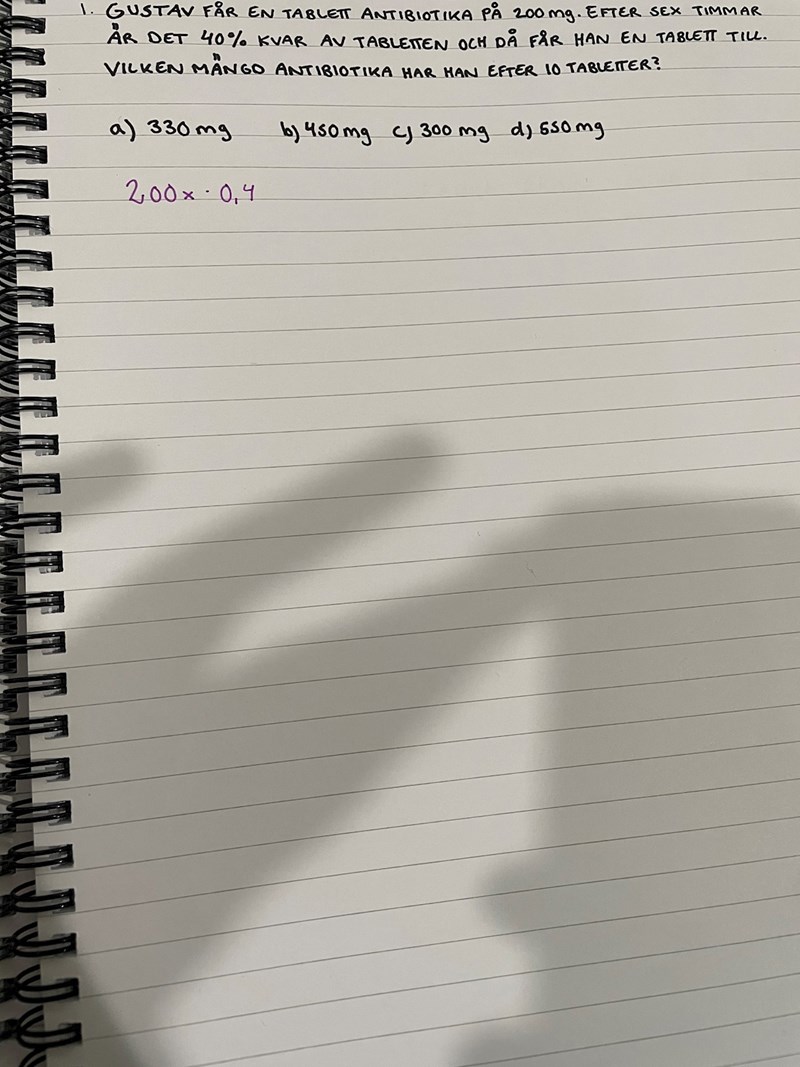 1. GUSTAV FÅR EN TABLETT ANTIBIOTIKA PÅ 200 mg. EFTER SEX TIMMAR
ÄR DET 40% KVAR AV TABLETTEN OCH DÅ FÅR HAN EN TABLETT TILL.
VILKEN MÄNGD ANTIBIOTIKA HAR HAN EFTER 10 TABLETTER?
a) 330 mg b) 450 mg c) 300 mg d) 650 mg
200x · 0,4